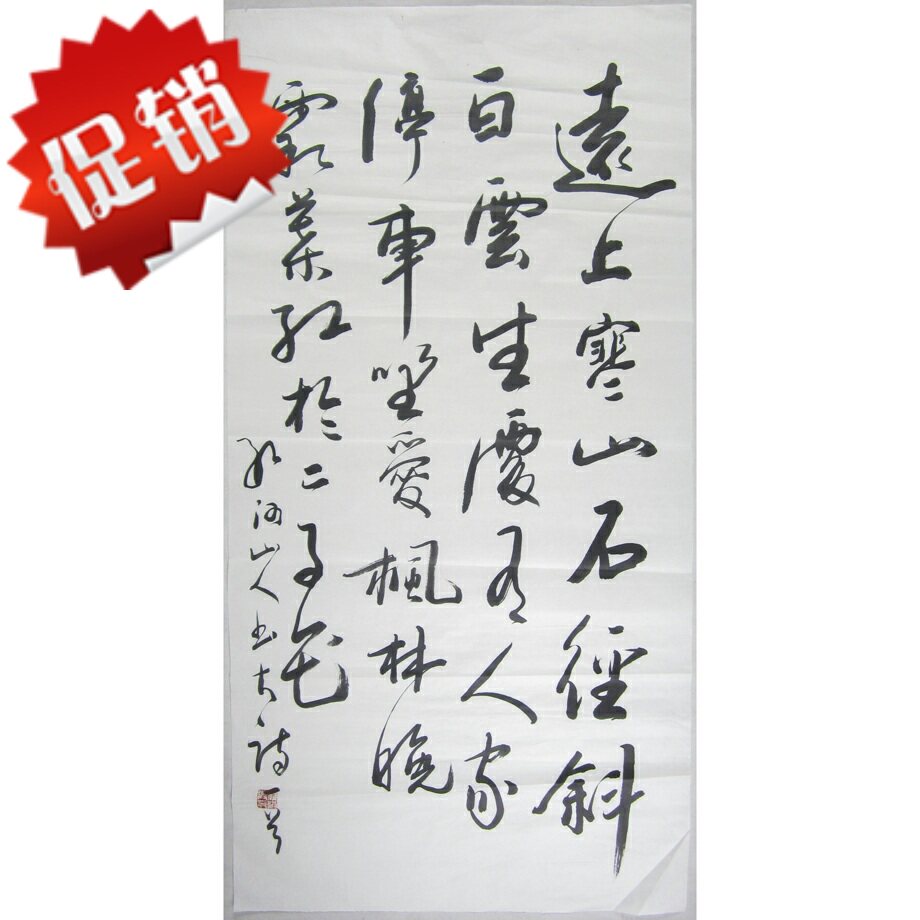 促销
遠上寒山石徑斜
白雲生處有人家
停車坐愛楓林晚
霜葉紅於二月花
山人书古诗一首